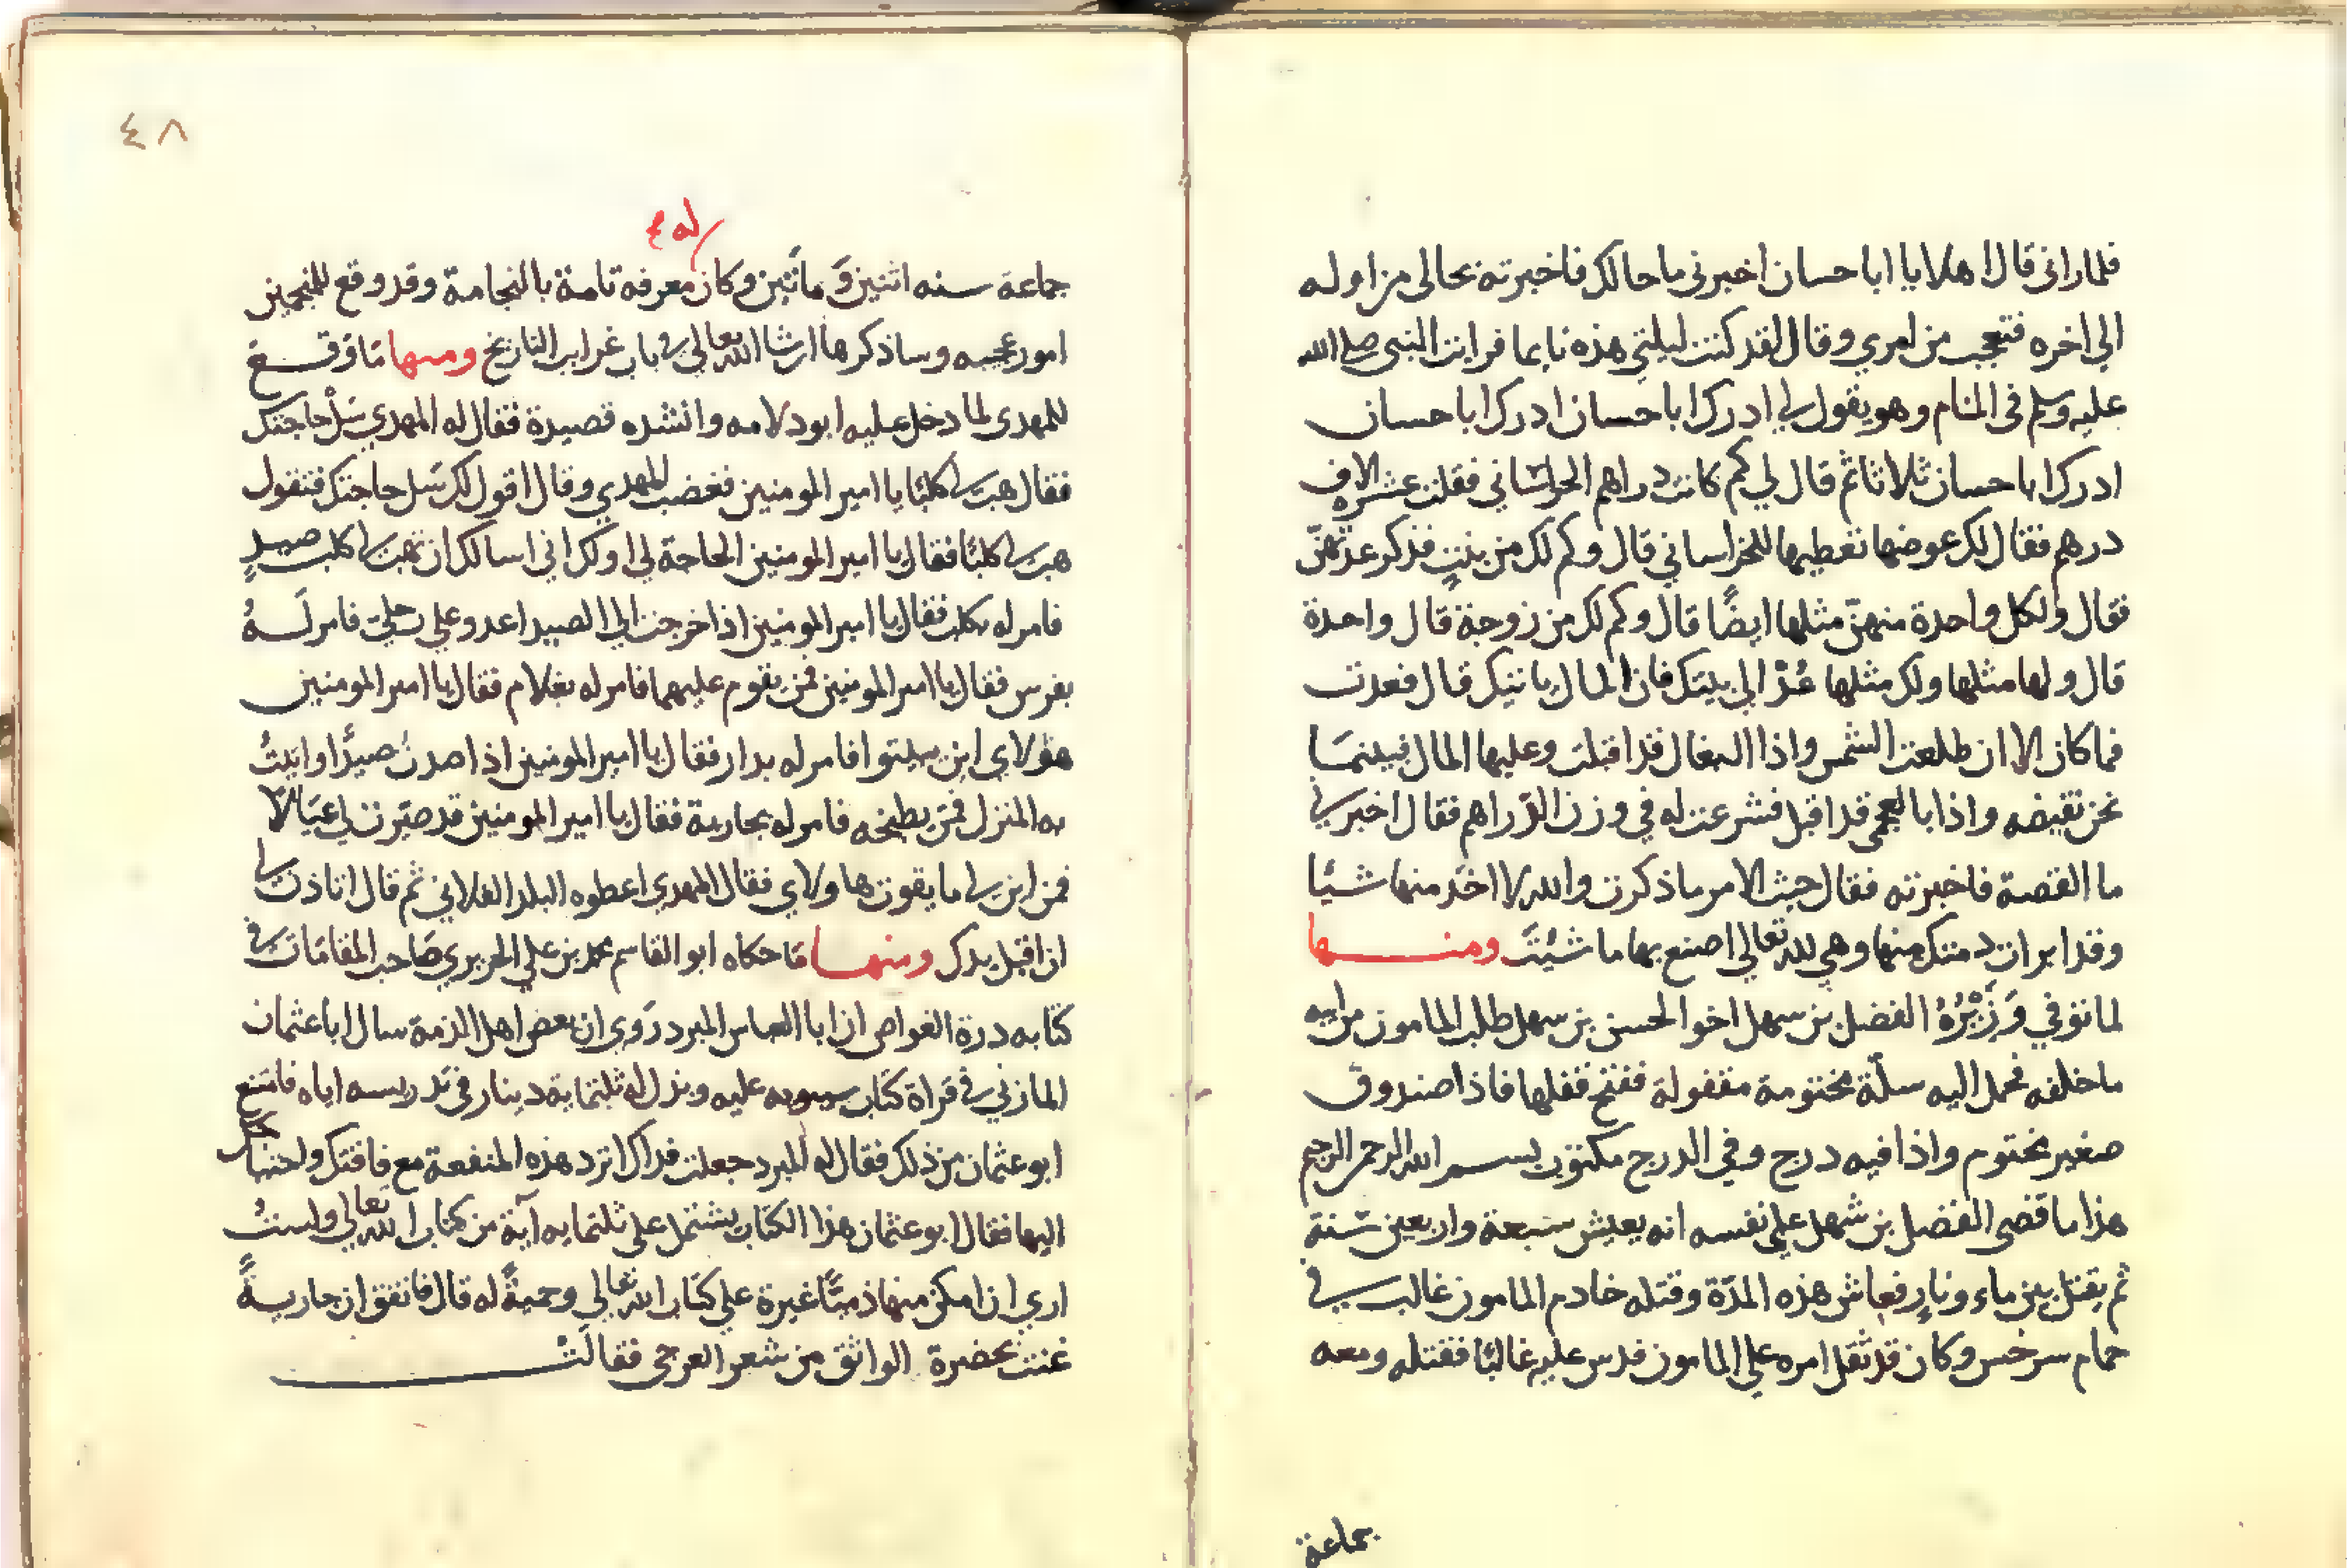 فلما راني قال اهلا يا ابا حسان اخبرني ما حالك فاخبرته بحالي من اوله
الي اخره فتعجب من امري وقال لقد كنت ليلتي هذه نايما فرايت النبي صلي الله
عليه وسلم في المنام وهو يقول لي ادرك ابا حسان ادرك ابا حسان
ادرك ابا حسان ثلاثا ثم قال لي كم كانت دراهم الخراساني فقلت عشرة الاف
درهم فقال لك عوضها تعطيها للخراساني قال وكم لك من بنت فذكر عدتهنّ
فقال ولكل واحدة منهنّ مثلها ايضًا قال وكم لك من زوجة قال واحدة
قال ولها مثلها ولك مثلها عُدْ الي بيتك فان المال ياتيك قال فعدت
فما كان الا ان طلعت الشمس واذا البغال قد اقبلت وعليها المال فبينما
نحن نقبضه واذا بالعجمي قد اقبل فشرعت له في وزن الدّراهم فقال اخبرني
ما القصة فاخبرته فقال حيث الامر ما ذكرت والله لا اخذ منها شيًا
وقد ابرات ذمتك منها وهي لله تعالي اصنع بها ما شيْتَ ومنها
لما توفي وَزْيْرُهُ الفضل بن سهل اخو الحسن بن سهل طلب المامون من ابيه
ما خلفه فحمل اليه سلّة مختومة مقفولة ففتح قفلها فاذا صندوق
صغير مختوم واذا فيه درج وفي الدرج مكتوب بسم الله الرحمن الرحيم
هذا ما قضي الفضل بن سهل علي نفسه انه يعيش سبعة واربعين سنة
ثم يقتل بين ماء ونارٍ فعاش هذه المدّة وقتله خادم المامون غالب في
حمام سرخس وكان قد ثقل امره علي المامون فدس عليه غالبًا فقتله ومعه
جماعة
٤٨
له
جماعة سنه اثنين وَماتَين وكان معرفه تامة بالنجامة وقد وقع للمنجمين
امور عجيبه وساذكرها ان شا الله تعالي في باب غرايب التاريخ ومنها مَا وَقع
للمهدي لما دخل عليه ابو دلامه وانشده قصيدة فقال له المهدي سَلْ حاجتك
فقال هب لي كلبًا يا امير المومنين فغضب المهدي وقال اقول لك سَل حاجتك فتقول
هب لي كلبًا فقال يا امير المومنين الحاجة لي او لك اني اسالك ان تهب لي كلب صيدٍ
فامر له بكلب فقال يا امير المومنين اذا خرجت الي الصيد اعدو علي رجليّ فامر لَهُ
بفرس فقال يا امير المومنين فمن يقوم عليهما فامر له بغلام فقال يا امير المومنين
هولاي اين يبيتوا فامر له بدار فقال يا امير المومنين اذا صدتُ صيدًا واتيتُ
به المنزل فمَن يطبخه فامر له بجارية فقال يا امير المومنين قد صيّرت لي عيَالاً
فمن اين لي ما يقوت هاولاي فقال المهدي اعطوه البلد الفلاني ثم قال اتاذن لي
ان اقبل يدك ومنها مَا حكاه ابو القاسم محمد بن علي الحريري صَاحب المقامَات في
كتابه درة الغواص ان ابا العباس المبرد رَوي ان بعض اهل الذمة سال ابا عثمان
المازني في قراة كتاب سيبويه عليه وبذل له ثلثماية دينار في تدريسه اياه فامتنع
ابو عثمان من ذلك فقال له المبرد جعلت فداك اترد هذه المنفعة مع فاقتك واحتياجك
اليها فقال ابو عثمان هذا الكتاب يشتمل علي ثلثمايه آية من كتاب الله تعالي ولستُ
اري ان امكن منها ذميًّا غيرة علي كتاب الله تعالي وحميةً له قال فاتفق ان جاريةً
غنت بحضرة الواثق من شعر العرجي فقالت